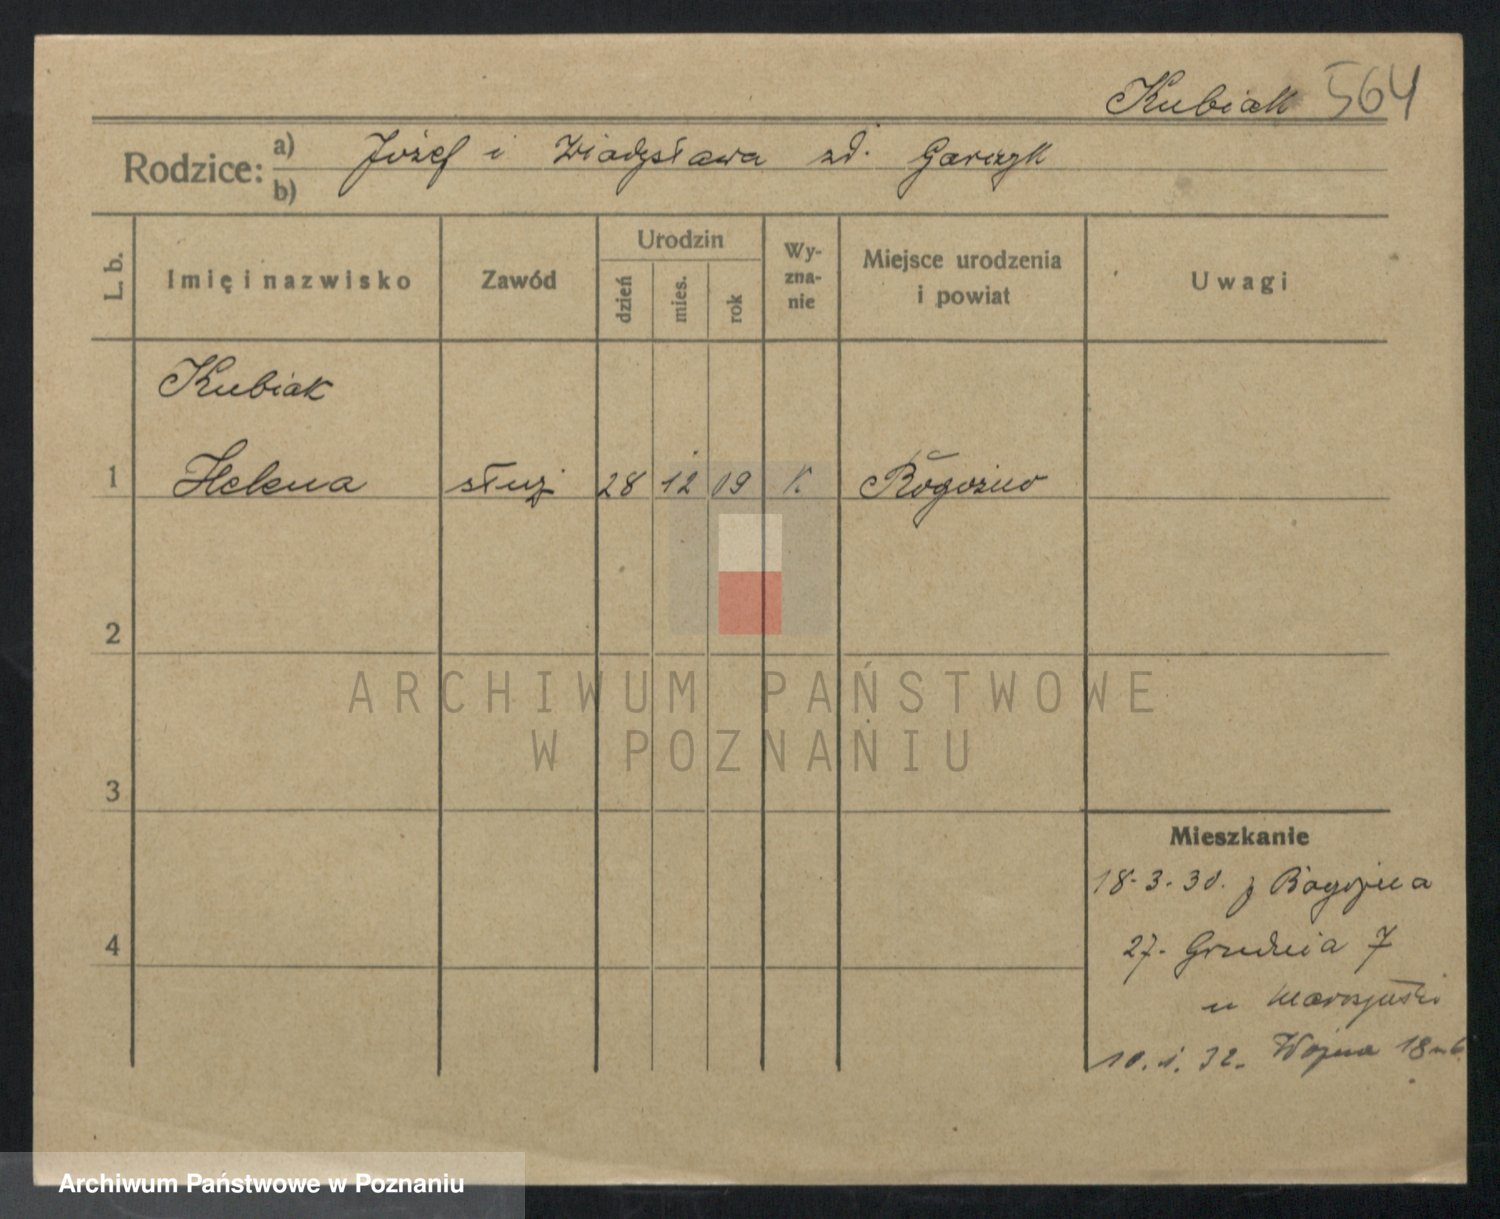 Kubiak 564
Rodzice: a) Józef i Władysława zd. Garczyk
b)
L. b.
Imię i nazwisko
Zawód
Urodzin
dzień
mies.
rok
Wy-
zna-
nie
Miejsce urodzenia
i powiat
Uwagi
Kubiak
1 Helena służ 28 12 09 K Rogoźno
2
3
4
Mieszkanie
18-3-30. z Rogoźna
27. Grudnia 7
u
10. 1. 32. 18
ARCHIWUM PAŃSTWOWE
W POZNANIU
Archiwum Państwowe w Poznaniu